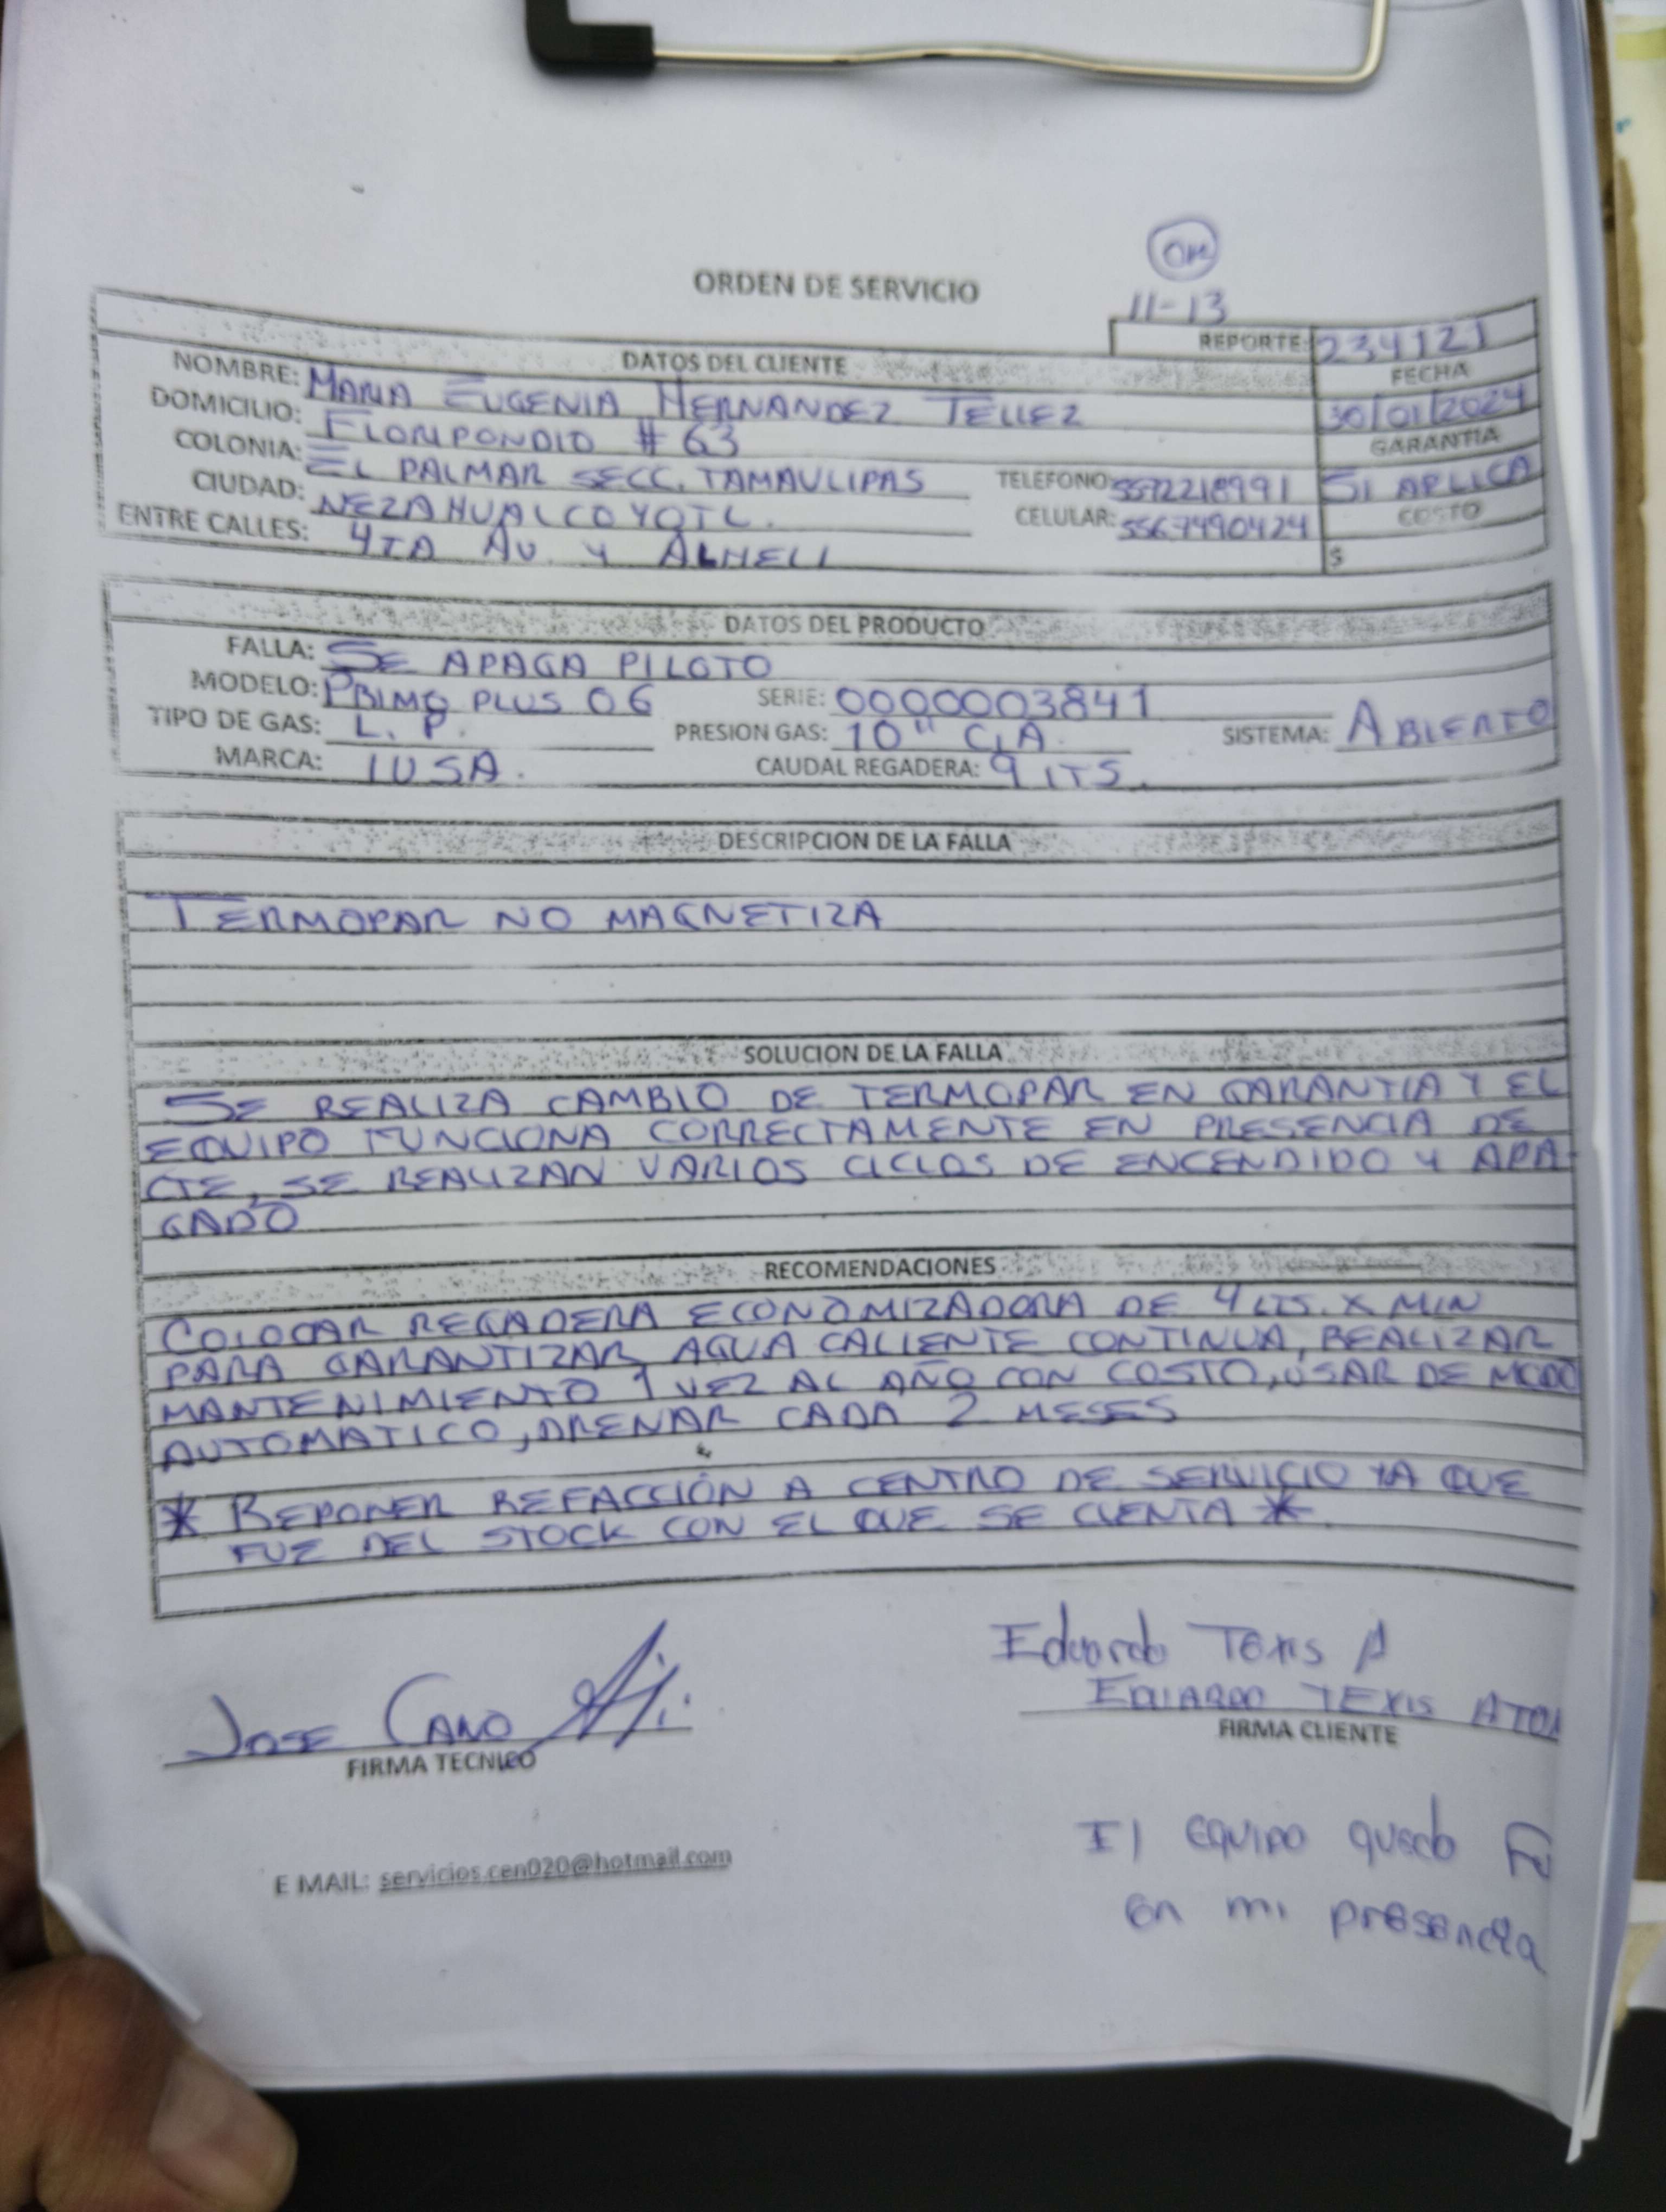 OK
ORDEN DE SERVICIO
11-13
REPORTE: 234121
DATOS DEL CLIENTE
FECHA
NOMBRE: MARIA EUGENIA HERNANDEZ TELLEZ
30/01/2024
DOMICILIO: FLORIPONDIO # 63
GARANTIA
COLONIA: EL PALMAR SECC. TAMAULIPAS TELEFONO: 5572218991 SI APLICA
CIUDAD: NEZAHUALCOYOTL. CELULAR: 5567490424 COSTO
ENTRE CALLES: 4TA AV. Y ALHELI $
DATOS DEL PRODUCTO
FALLA: SE APAGA PILOTO
MODELO: PRIMO PLUS 06 SERIE: 0000003841
TIPO DE GAS: L. P. PRESION GAS: 10" C.A. SISTEMA: ABIERTO
MARCA: IUSA. CAUDAL REGADERA: 9 LTS.
DESCRIPCION DE LA FALLA
TERMOPAR NO MAGNETIZA
SOLUCION DE LA FALLA
SE REALIZA CAMBIO DE TERMOPAR EN GARANTIA Y EL
EQUIPO FUNCIONA CORRECTAMENTE EN PRESENCIA DE
CTE, SE REALIZAN VARIOS CICLOS DE ENCENDIDO Y APA-
GADO
RECOMENDACIONES
COLOCAR REGADERA ECONOMIZADORA DE 4 LTS. X MIN
PARA GARANTIZAR AGUA CALIENTE CONTINUA, REALIZAR
MANTENIMIENTO 1 VEZ AL AÑO CON COSTO, USAR DE MODO
AUTOMATICO, DRENAR CADA 2 MESES
* REPONER REFACCIÓN A CENTRO DE SERVICIO YA QUE
FUE DEL STOCK CON EL QUE SE CUENTA *.
Eduardo Texis A
JOSE CANO EDUARDO TEXIS
FIRMA TECNICO FIRMA CLIENTE
El equipo quedo
E MAIL: servicios.cen020@hotmail.com
en mi presencia